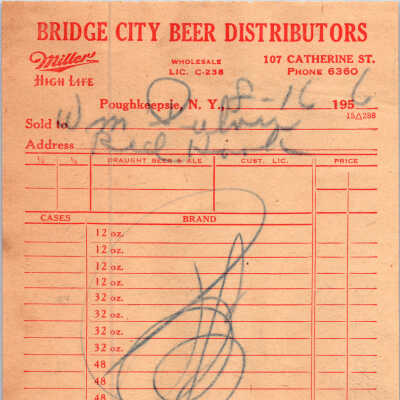 BRIDGE CITY BEER DISTRIBUTORS
Miller HIGH LIFE
WHOLESALE LIC. C-238
107 CATHERINE ST. PHONE 6360
Poughkeepsie, N. Y., 8-16 1956
15△288
Sold to Wm
Address Red
½ ¼ DRAUGHT BEER - ALE ½ ¼ CUST. LIC. PRICE
CASES BRAND
12 oz.
12 oz.
12 oz.
12 oz.
32 oz.
32 oz.
32 oz.
32 oz.
48
48
48